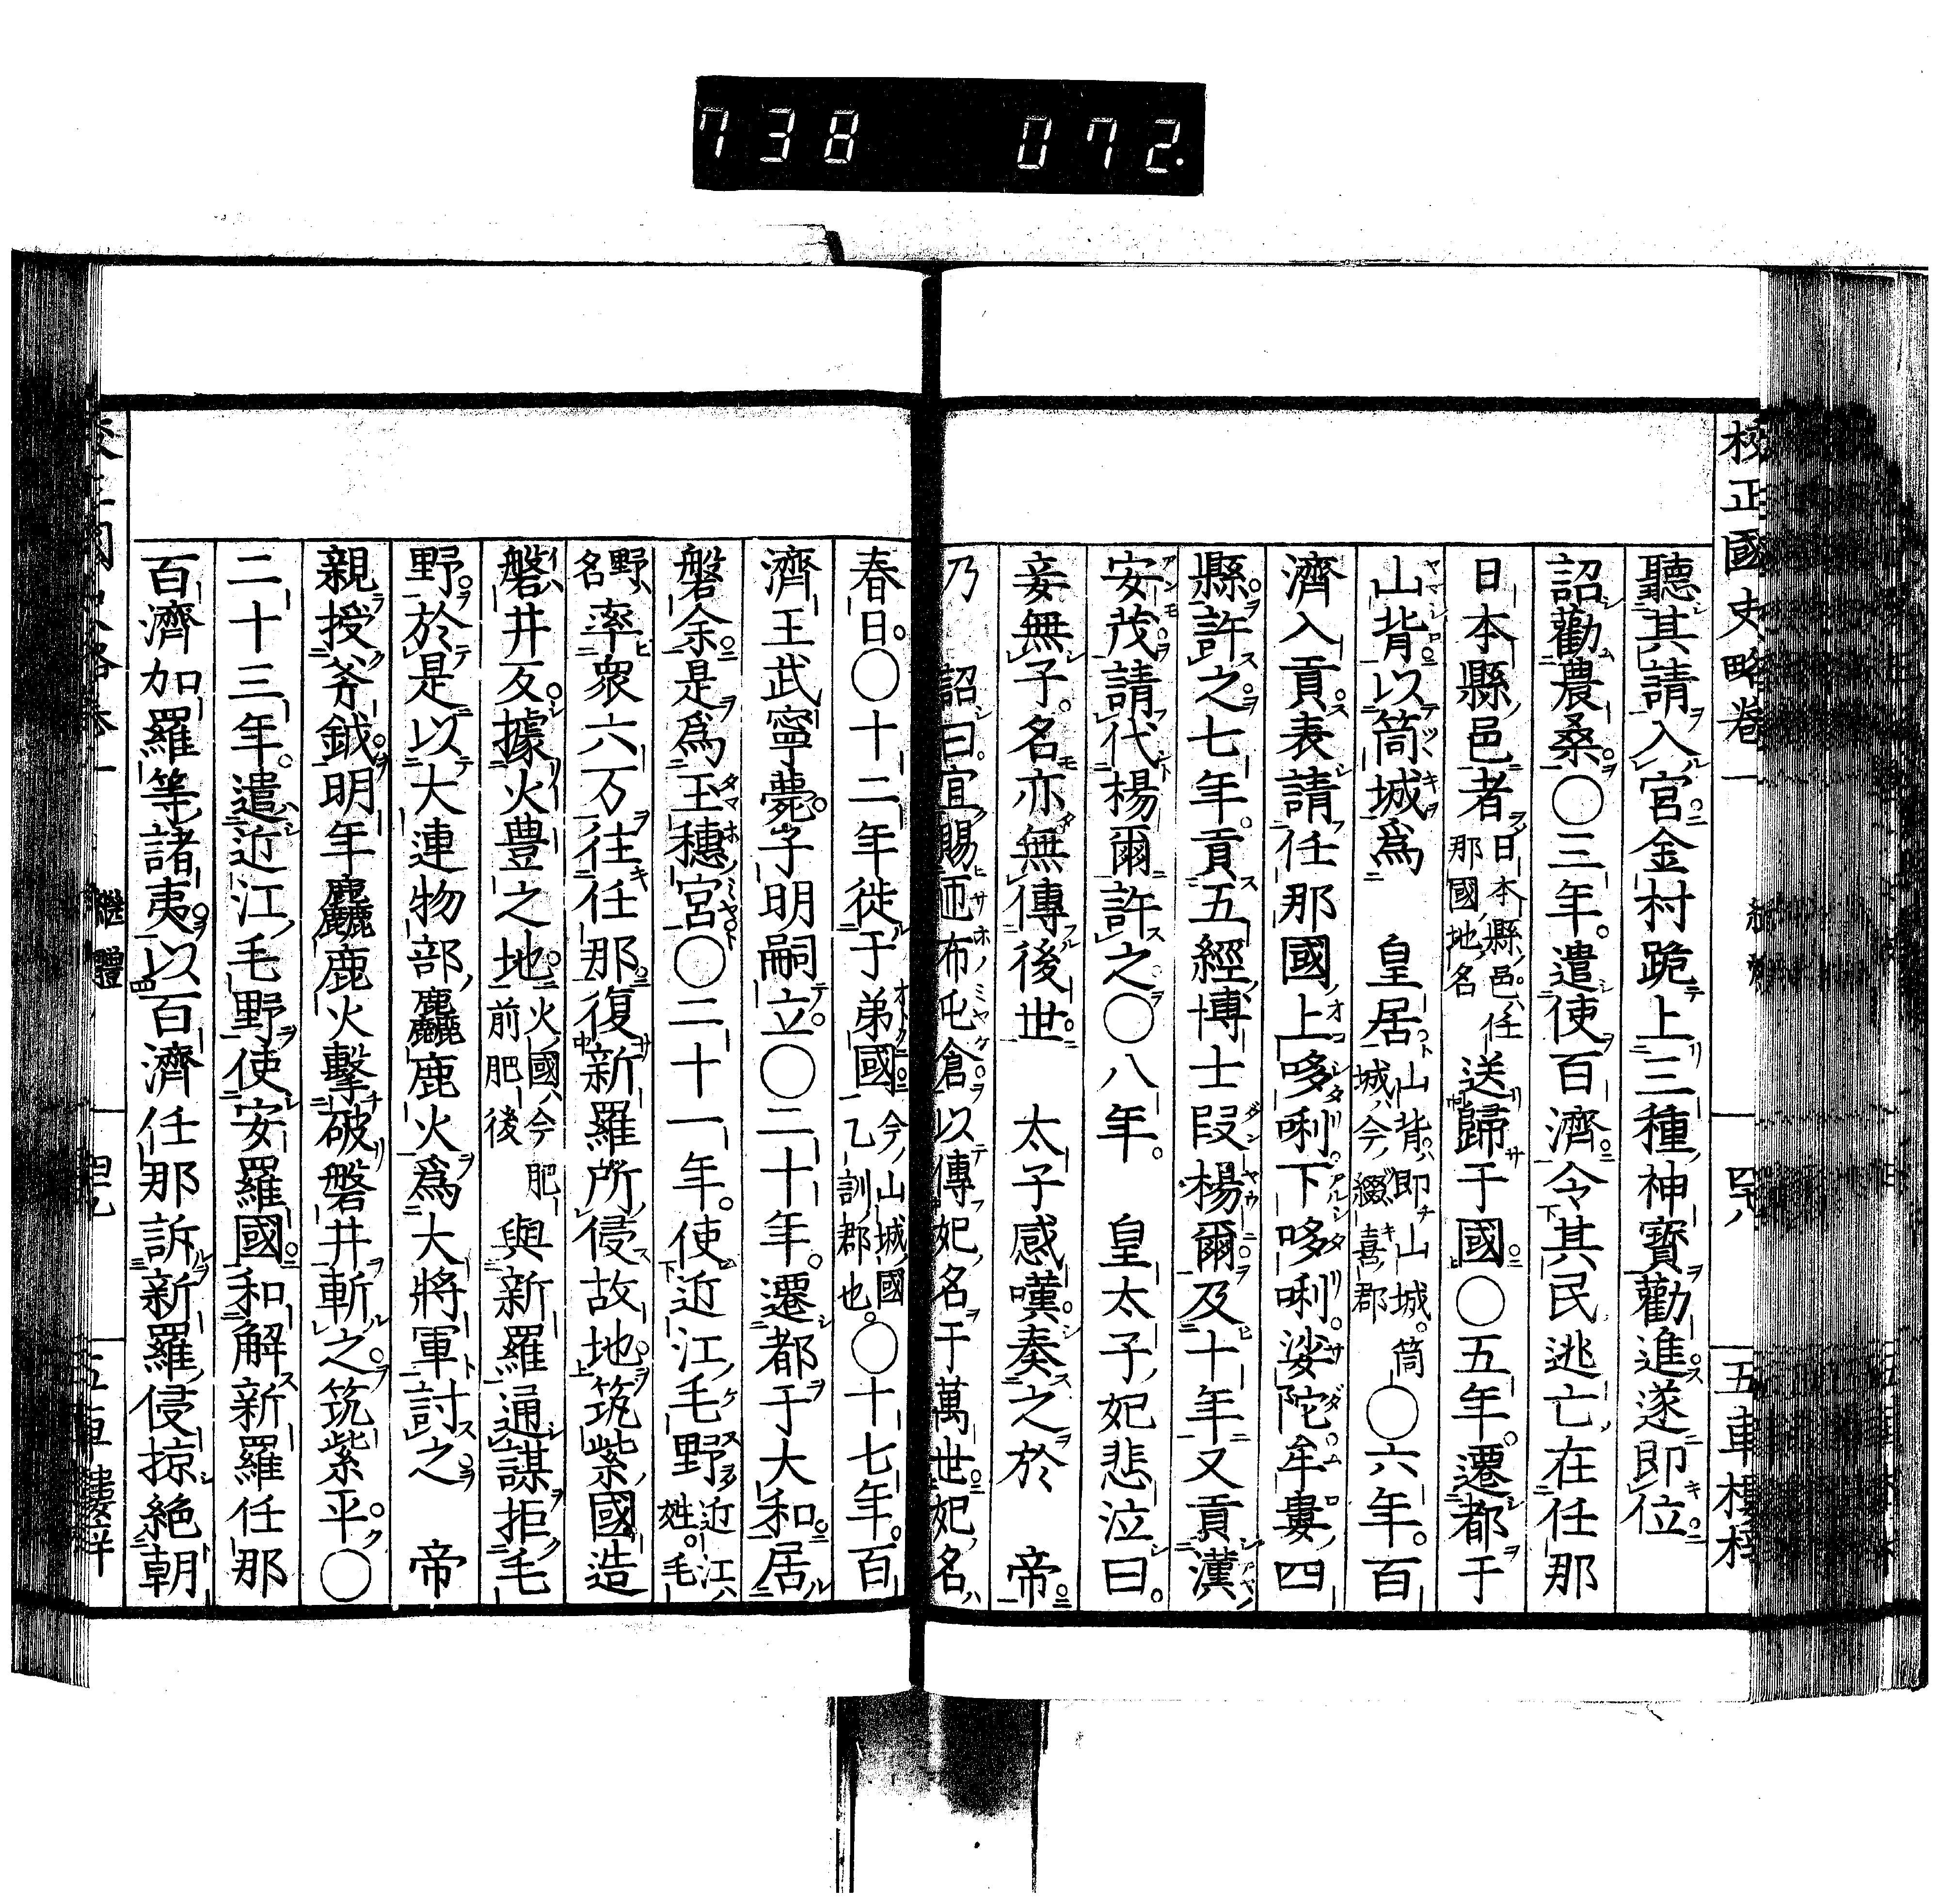 738 072.
校正國史略卷一 四十八 五車樓梓
聽其請入宮金村跪上三種神寶勸進遂即位
詔勸農桑〇三年。遣使百濟令其民逃亡在任那
日本縣邑者日本縣邑、任那國地名送歸于國〇五年。遷都于
山背以筒城爲 皇居山背、即山城。筒城、今綴喜郡〇六年。百
濟入貢表請任那國上哆唎下哆唎。娑陀牟婁四
縣許之七年。貢五經博士段楊爾及十年又貢漢
安茂請代楊爾許之〇八年。 皇太子妃悲泣曰。
妾無子。名亦無傳後世 太子感嘆奏之於 帝
乃 詔曰。宜賜匝布屯倉以傳妃名于萬世妃名
春日。〇十二年徙于弟國今山城國乙訓郡也。〇十七年。百
濟王武寧薨。子明嗣立。〇二十年。遷都于大和居
磐余是爲玉穗宮〇二十一年。使近江毛野近江、姓。毛
野、名率衆六万往任那復新羅所侵故地筑紫國造
磐井反據火豊之地火國、今肥前肥後與新羅通謀拒毛
野於是以大連物部麤鹿火爲大將軍討之 帝
親授斧鉞明年麤鹿火擊破磐井斬之筑紫平。〇
二十三年。遣近江毛野使安羅國和解新羅任那
百濟加羅等諸夷以百濟任那訴新羅侵掠絶朝
繼體